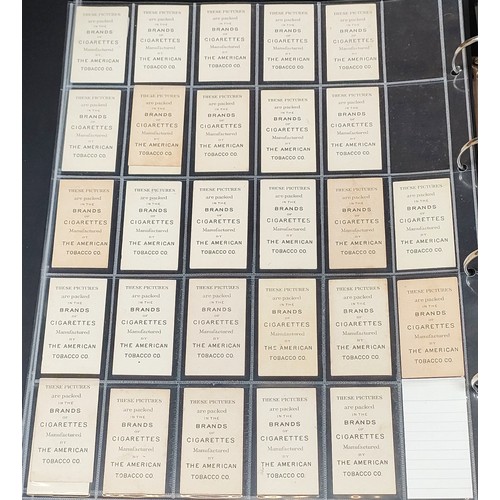 THESE PICTURES
are packed
IN THE
BRANDS
OF
CIGARETTES
Manufactured
BY
THE AMERICAN
TOBACCO CO.
THESE PICTURES
are packed
IN THE
BRANDS
OF
CIGARETTES
Manufactured
BY
THE AMERICAN
TOBACCO CO.
THESE PICTURES
are packed
IN THE
BRANDS
OF
CIGARETTES
Manufactured
BY
THE AMERICAN
TOBACCO CO.
THESE PICTURES
are packed
IN THE
BRANDS
OF
CIGARETTES
Manufactured
BY
THE AMERICAN
TOBACCO CO.
THESE PICTURES
are packed
IN THE
BRANDS
OF
CIGARETTES
Manufactured
BY
THE AMERICAN
TOBACCO CO.
THESE PICTURES
are packed
IN THE
BRANDS
OF
CIGARETTES
Manufactured
BY
THE AMERICAN
TOBACCO CO.
THESE PICTURES
are packed
IN THE
BRANDS
OF
CIGARETTES
Manufactured
BY
THE AMERICAN
TOBACCO CO.
THESE PICTURES
are packed
IN THE
BRANDS
OF
CIGARETTES
Manufactured
BY
THE AMERICAN
TOBACCO CO.
THESE PICTURES
are packed
IN THE
BRANDS
OF
CIGARETTES
Manufactured
BY
THE AMERICAN
TOBACCO CO.
THESE PICTURES
are packed
IN THE
BRANDS
OF
CIGARETTES
Manufactured
BY
THE AMERICAN
TOBACCO CO.
THESE PICTURES
are packed
IN THE
BRANDS
OF
CIGARETTES
Manufactured
BY
THE AMERICAN
TOBACCO CO.
THESE PICTURES
are packed
IN THE
BRANDS
OF
CIGARETTES
Manufactured
BY
THE AMERICAN
TOBACCO CO.
THESE PICTURES
are packed
IN THE
BRANDS
OF
CIGARETTES
Manufactured
BY
THE AMERICAN
TOBACCO CO.
THESE PICTURES
are packed
IN THE
BRANDS
OF
CIGARETTES
Manufactured
BY
THE AMERICAN
TOBACCO CO.
THESE PICTURES
are packed
IN THE
BRANDS
OF
CIGARETTES
Manufactured
BY
THE AMERICAN
TOBACCO CO.
THESE PICTURES
are packed
IN THE
BRANDS
OF
CIGARETTES
Manufactured
BY
THE AMERICAN
TOBACCO CO.
THESE PICTURES
are packed
IN THE
BRANDS
OF
CIGARETTES
Manufactured
BY
THE AMERICAN
TOBACCO CO.
THESE PICTURES
are packed
IN THE
BRANDS
OF
CIGARETTES
Manufactured
BY
THE AMERICAN
TOBACCO CO.
THESE PICTURES
are packed
IN THE
BRANDS
OF
CIGARETTES
Manufactured
BY
THE AMERICAN
TOBACCO CO.
THESE PICTURES
are packed
IN THE
BRANDS
OF
CIGARETTES
Manufactured
BY
THE AMERICAN
TOBACCO CO.
THESE PICTURES
are packed
IN THE
BRANDS
OF
CIGARETTES
Manufactured
BY
THE AMERICAN
TOBACCO CO.
THESE PICTURES
are packed
IN THE
BRANDS
OF
CIGARETTES
Manufactured
BY
THE AMERICAN
TOBACCO CO.
THESE PICTURES
are packed
IN THE
BRANDS
OF
CIGARETTES
Manufactured
BY
THE AMERICAN
TOBACCO CO.
THESE PICTURES
are packed
IN THE
BRANDS
OF
CIGARETTES
Manufactured
BY
THE AMERICAN
TOBACCO CO.
THESE PICTURES
are packed
IN THE
BRANDS
OF
CIGARETTES
Manufactured
BY
THE AMERICAN
TOBACCO CO.
THESE PICTURES
are packed
IN THE
BRANDS
OF
CIGARETTES
Manufactured
BY
THE AMERICAN
TOBACCO CO.
THESE PICTURES
are packed
IN THE
BRANDS
OF
CIGARETTES
Manufactured
BY
THE AMERICAN
TOBACCO CO.